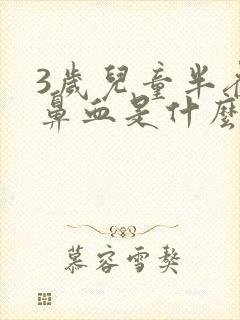 3歲兒童半夜
鼻血是什麼
慕容雪獒